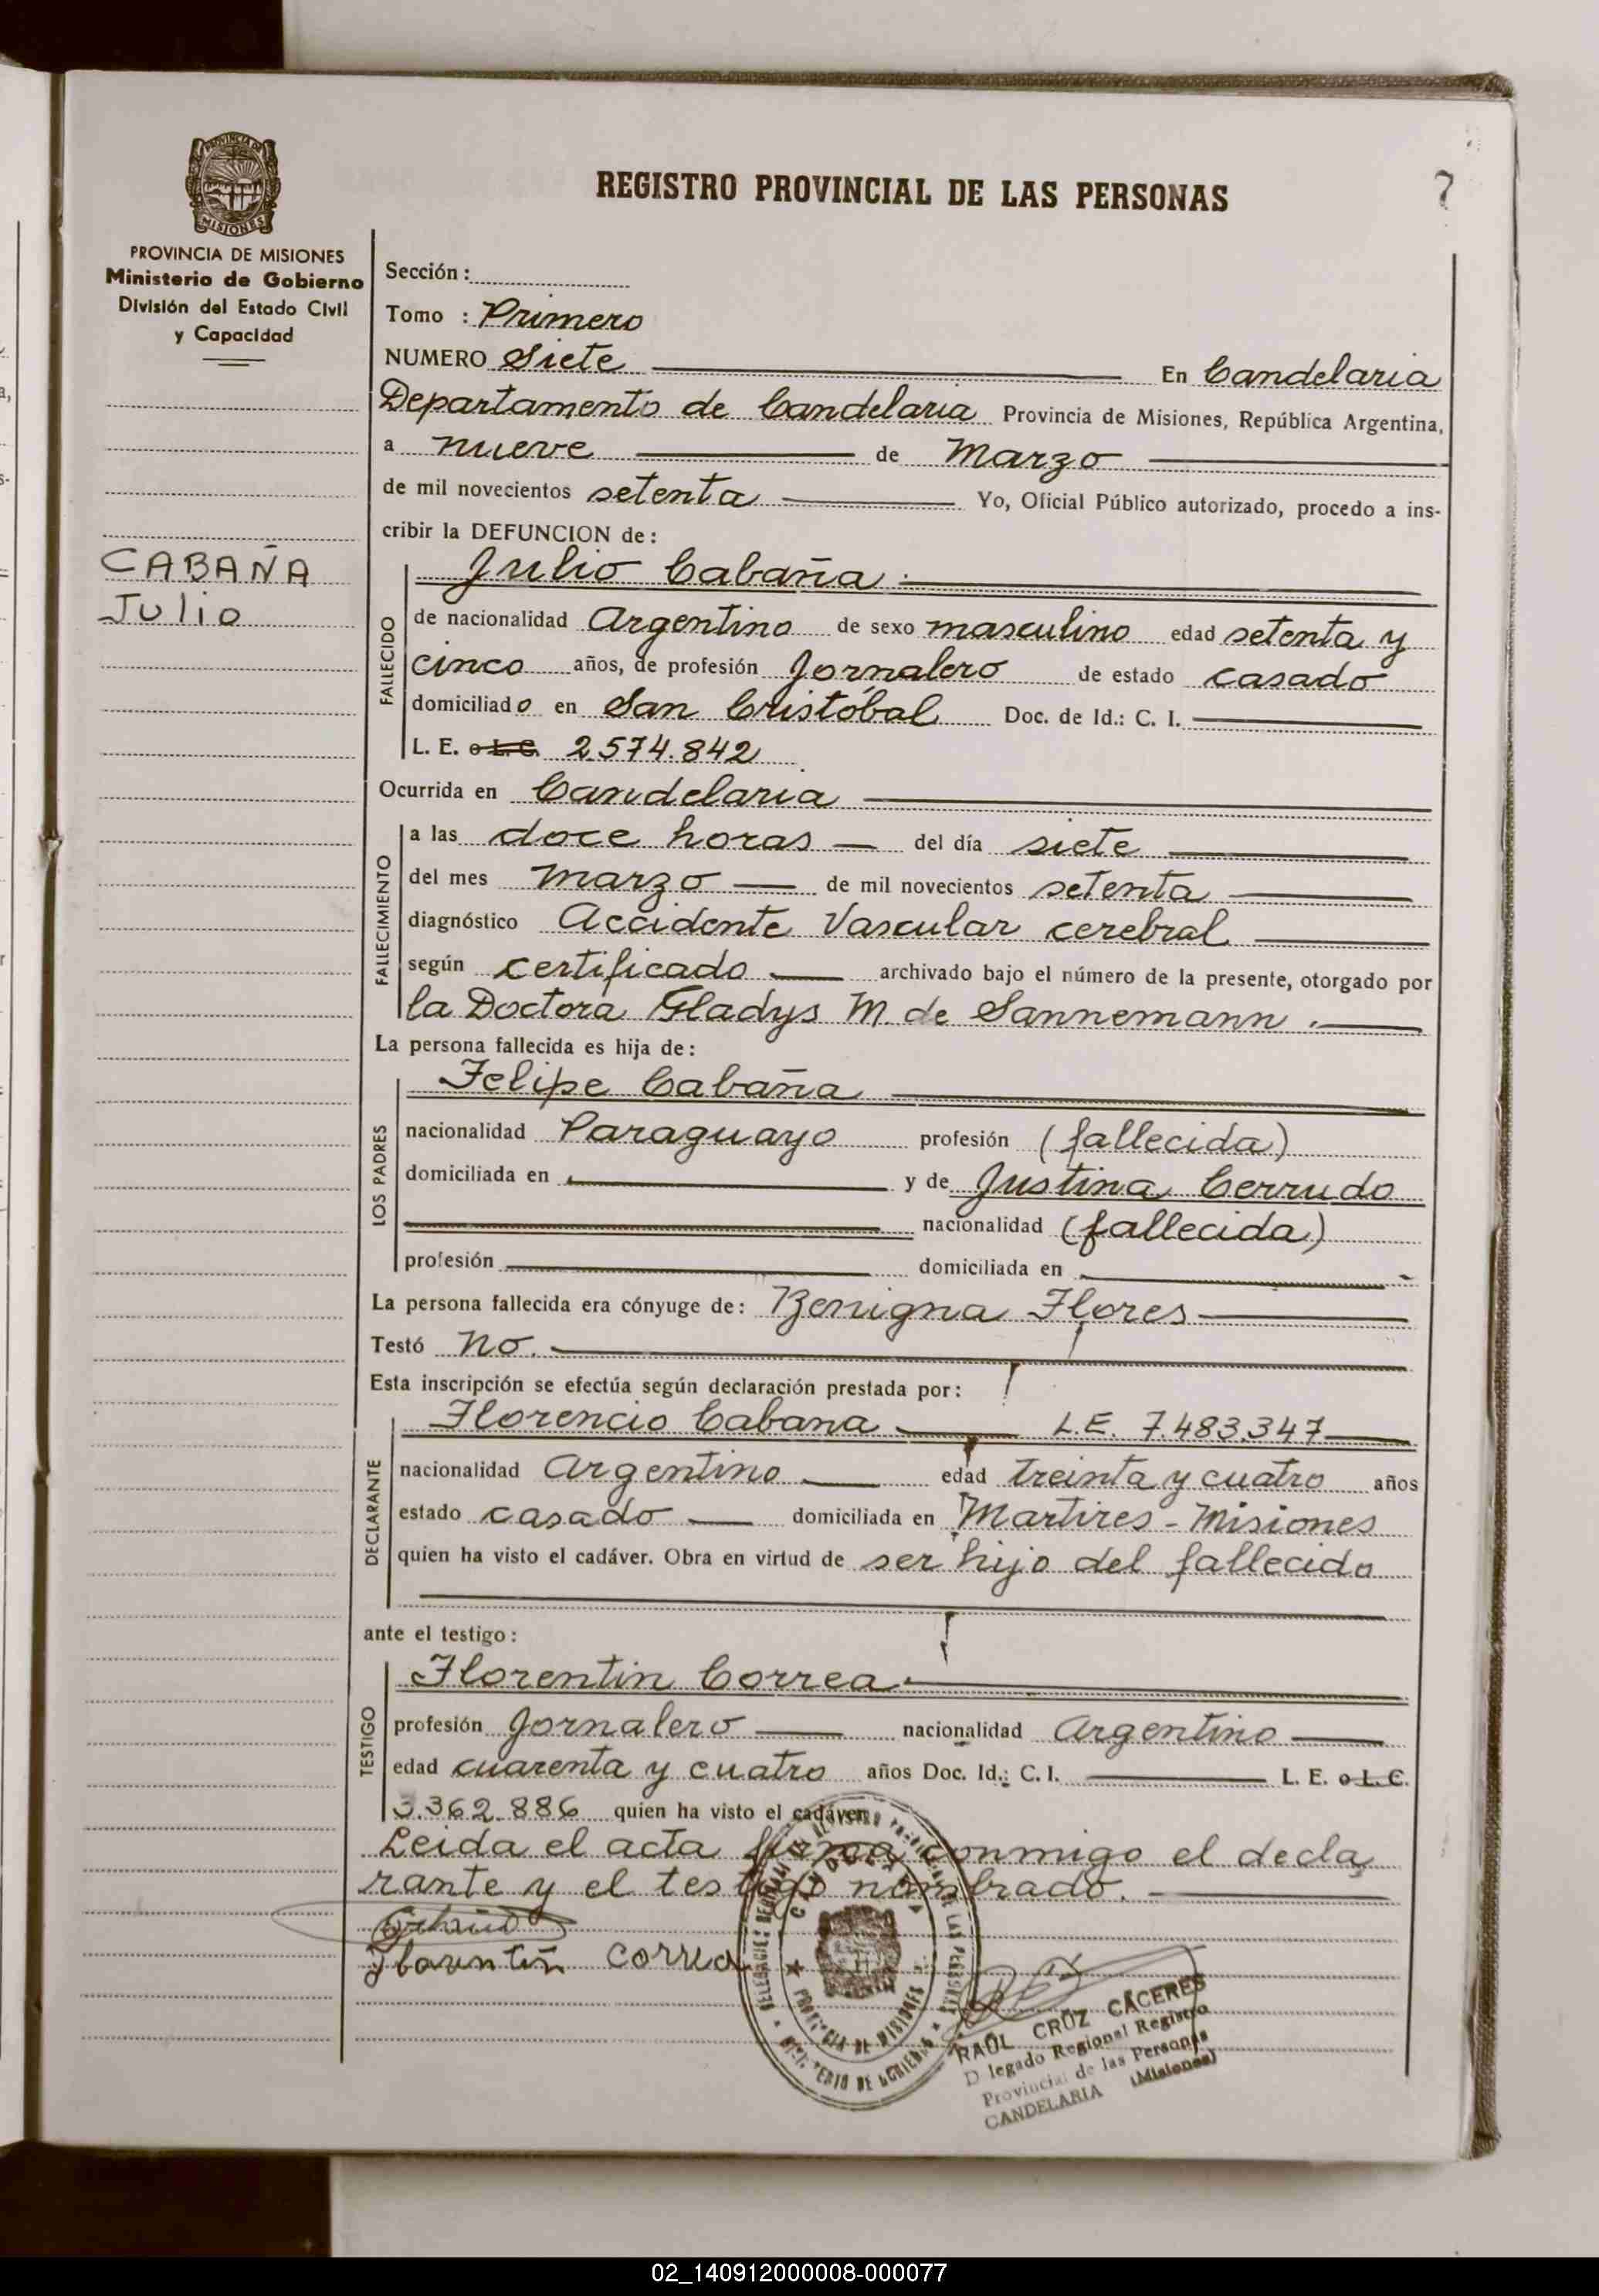 REGISTRO PROVINCIAL DE LAS PERSONAS
7
PROVINCIA DE MISIONES
PROVINCIA DE MISIONES
Ministerio de Gobierno
División del Estado Civil
y Capacidad
CABAÑA
Julio
Sección :
Tomo : Primero
NUMERO Siete En Candelaria
Departamento de Candelaria Provincia de Misiones, República Argentina,
a nueve de Marzo
de mil novecientos setenta Yo, Oficial Público autorizado, procedo a ins-
cribir la DEFUNCION de :
FALLECIDO
Julio Cabaña
de nacionalidad Argentino de sexo masculino edad setenta y
cinco años, de profesión Jornalero de estado casado
domiciliado en San Cristóbal Doc. de Id.: C. I.
L. E. o L.C. 2.574.842
Ocurrida en Candelaria
FALLECIMIENTO
a las doce horas del día siete
del mes Marzo de mil novecientos setenta
diagnóstico Accidente Vascular cerebral
según certificado archivado bajo el número de la presente, otorgado por
la Doctora Gladys M. de Sannemann.
La persona fallecida es hija de :
LOS PADRES
Felipe Cabaña
nacionalidad Paraguayo profesión (fallecida)
domiciliada en y de Justina Cerrudo
nacionalidad (fallecida)
profesión domiciliada en
La persona fallecida era cónyuge de : Benigna Flores
Testó No.
Esta inscripción se efectúa según declaración prestada por :
DECLARANTE
Florencio Cabana L.E. 7.483.347
nacionalidad Argentino edad treinta y cuatro años
estado casado domiciliada en Martires - Misiones
quien ha visto el cadáver. Obra en virtud de ser hijo del fallecido
ante el testigo :
TESTIGO
Florentin Correa
profesión Jornalero nacionalidad Argentino
edad cuarenta y cuatro años Doc. Id.: C. I. L. E. o L. C.
3.362.886 quien ha visto el cadáver.
Leida el acta firma conmigo el decla
rante y el testigo nombrado.
Correa
PROVINCIA DE MISIONES
RAUL CRUZ CACERES
D legado Regional Registro
Provincial de las Personas
CANDELARIA (Misiones)
02_140912000008-000077